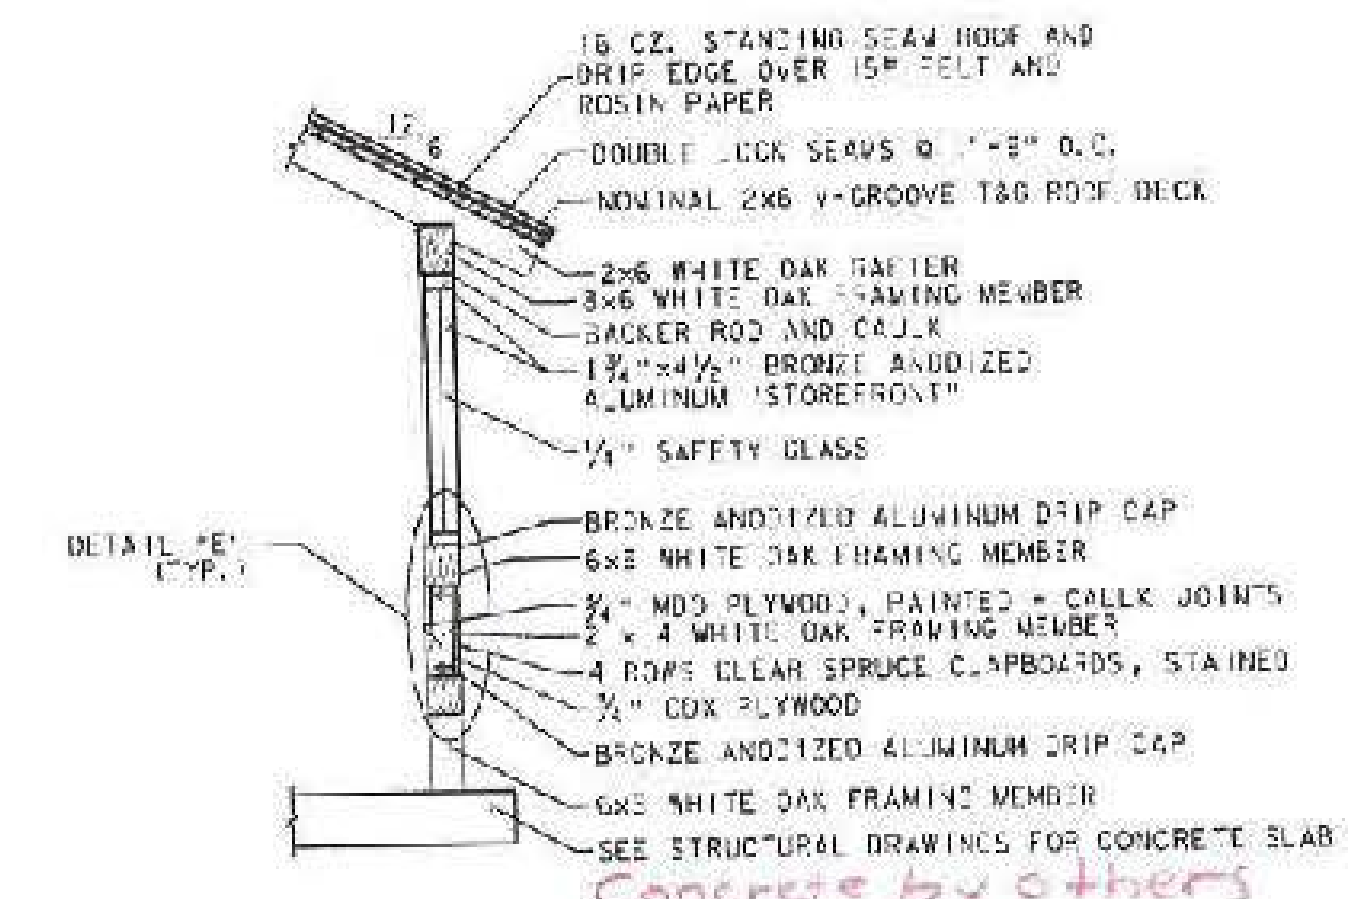 16 OZ. STANDING SEAM ROOF AND
DRIP EDGE OVER 15# FELT AND
ROSIN PAPER
12
6
DOUBLE LOCK SEAMS @ O.C.
NOMINAL 2x6 V-GROOVE T&G ROOF DECK
2x6 WHITE OAK RAFTER
8x6 WHITE OAK FRAMING MEMBER
BACKER ROD AND CAULK
1 3/4" x 4 1/2" BRONZE ANODIZED
ALUMINUM "STOREFRONT"
1/4" SAFETY GLASS
BRONZE ANODIZED ALUMINUM DRIP CAP
DETAIL "E"
(TYP.)
6x8 WHITE OAK FRAMING MEMBER
3/4" MDO PLYWOOD, PAINTED - CAULK JOINTS
2 x 4 WHITE OAK FRAMING MEMBER
4 ROWS CLEAR SPRUCE CLAPBOARDS, STAINED
CDX PLYWOOD
BRONZE ANODIZED ALUMINUM DRIP CAP
6x8 WHITE OAK FRAMING MEMBER
SEE STRUCTURAL DRAWINGS FOR CONCRETE SLAB
Concrete by others